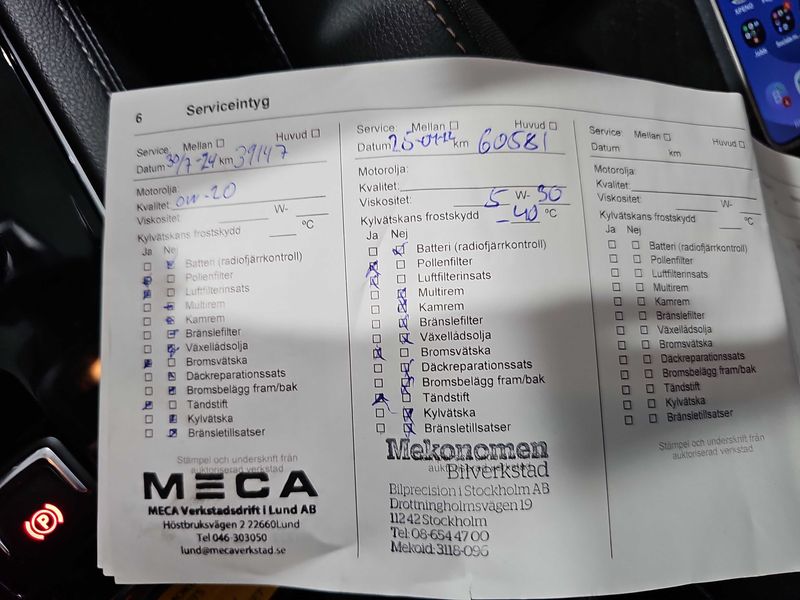 6 Serviceintyg
Service: Mellan ☐ Huvud ☐
Datum 30/7-24 km 39147
Motorolja:
Kvalitet: 0W-20
Viskositet W-
Kylvätskans frostskydd °C
Ja Nej
Batteri (radiofjärrkontroll)
Pollenfilter
Luftfilterinsats
Multirem
Kamrem
Bränslefilter
Växellådsolja
Bromsvätska
Däckreparationssats
Bromsbelägg fram/bak
Tändstift
Kylvätska
Bränsletillsatser
Stämpel och underskrift från
auktoriserad verkstad
MECA
MECA Verkstadsdrift i Lund AB
Höstbruksvägen 2 22660Lund
Tel 046 303050
lund@mecaverkstad.se
Service: Mellan ☐ Huvud ☐
Datum km 60581
Motorolja:
Kvalitet:
Viskositet: 5 W- 30
Kylvätskans frostskydd -40 °C
Ja Nej
Batteri (radiofjärrkontroll)
Pollenfilter
Luftfilterinsats
Multirem
Kamrem
Bränslefilter
Växellådsolja
Bromsvätska
Däckreparationssats
Bromsbelägg fram/bak
Tändstift
Kylvätska
Bränsletillsatser
Mekonomen
Bilverkstad
Bilprecision i Stockholm AB
Drottningholmsvägen 19
112 42 Stockholm
Tel: 08-654 47 00
Mekoid: 3118-096
Service: Mellan ☐ Huvud ☐
Datum km
Motorolja:
Kvalitet:
Viskositet: W-
Kylvätskans frostskydd °C
Ja Nej
Batteri (radiofjärrkontroll)
Pollenfilter
Luftfilterinsats
Multirem
Kamrem
Bränslefilter
Växellådsolja
Bromsvätska
Däckreparationssats
Bromsbelägg fram/bak
Tändstift
Kylvätska
Bränsletillsatser
Stämpel och underskrift från
auktoriserad verkstad
XPENG